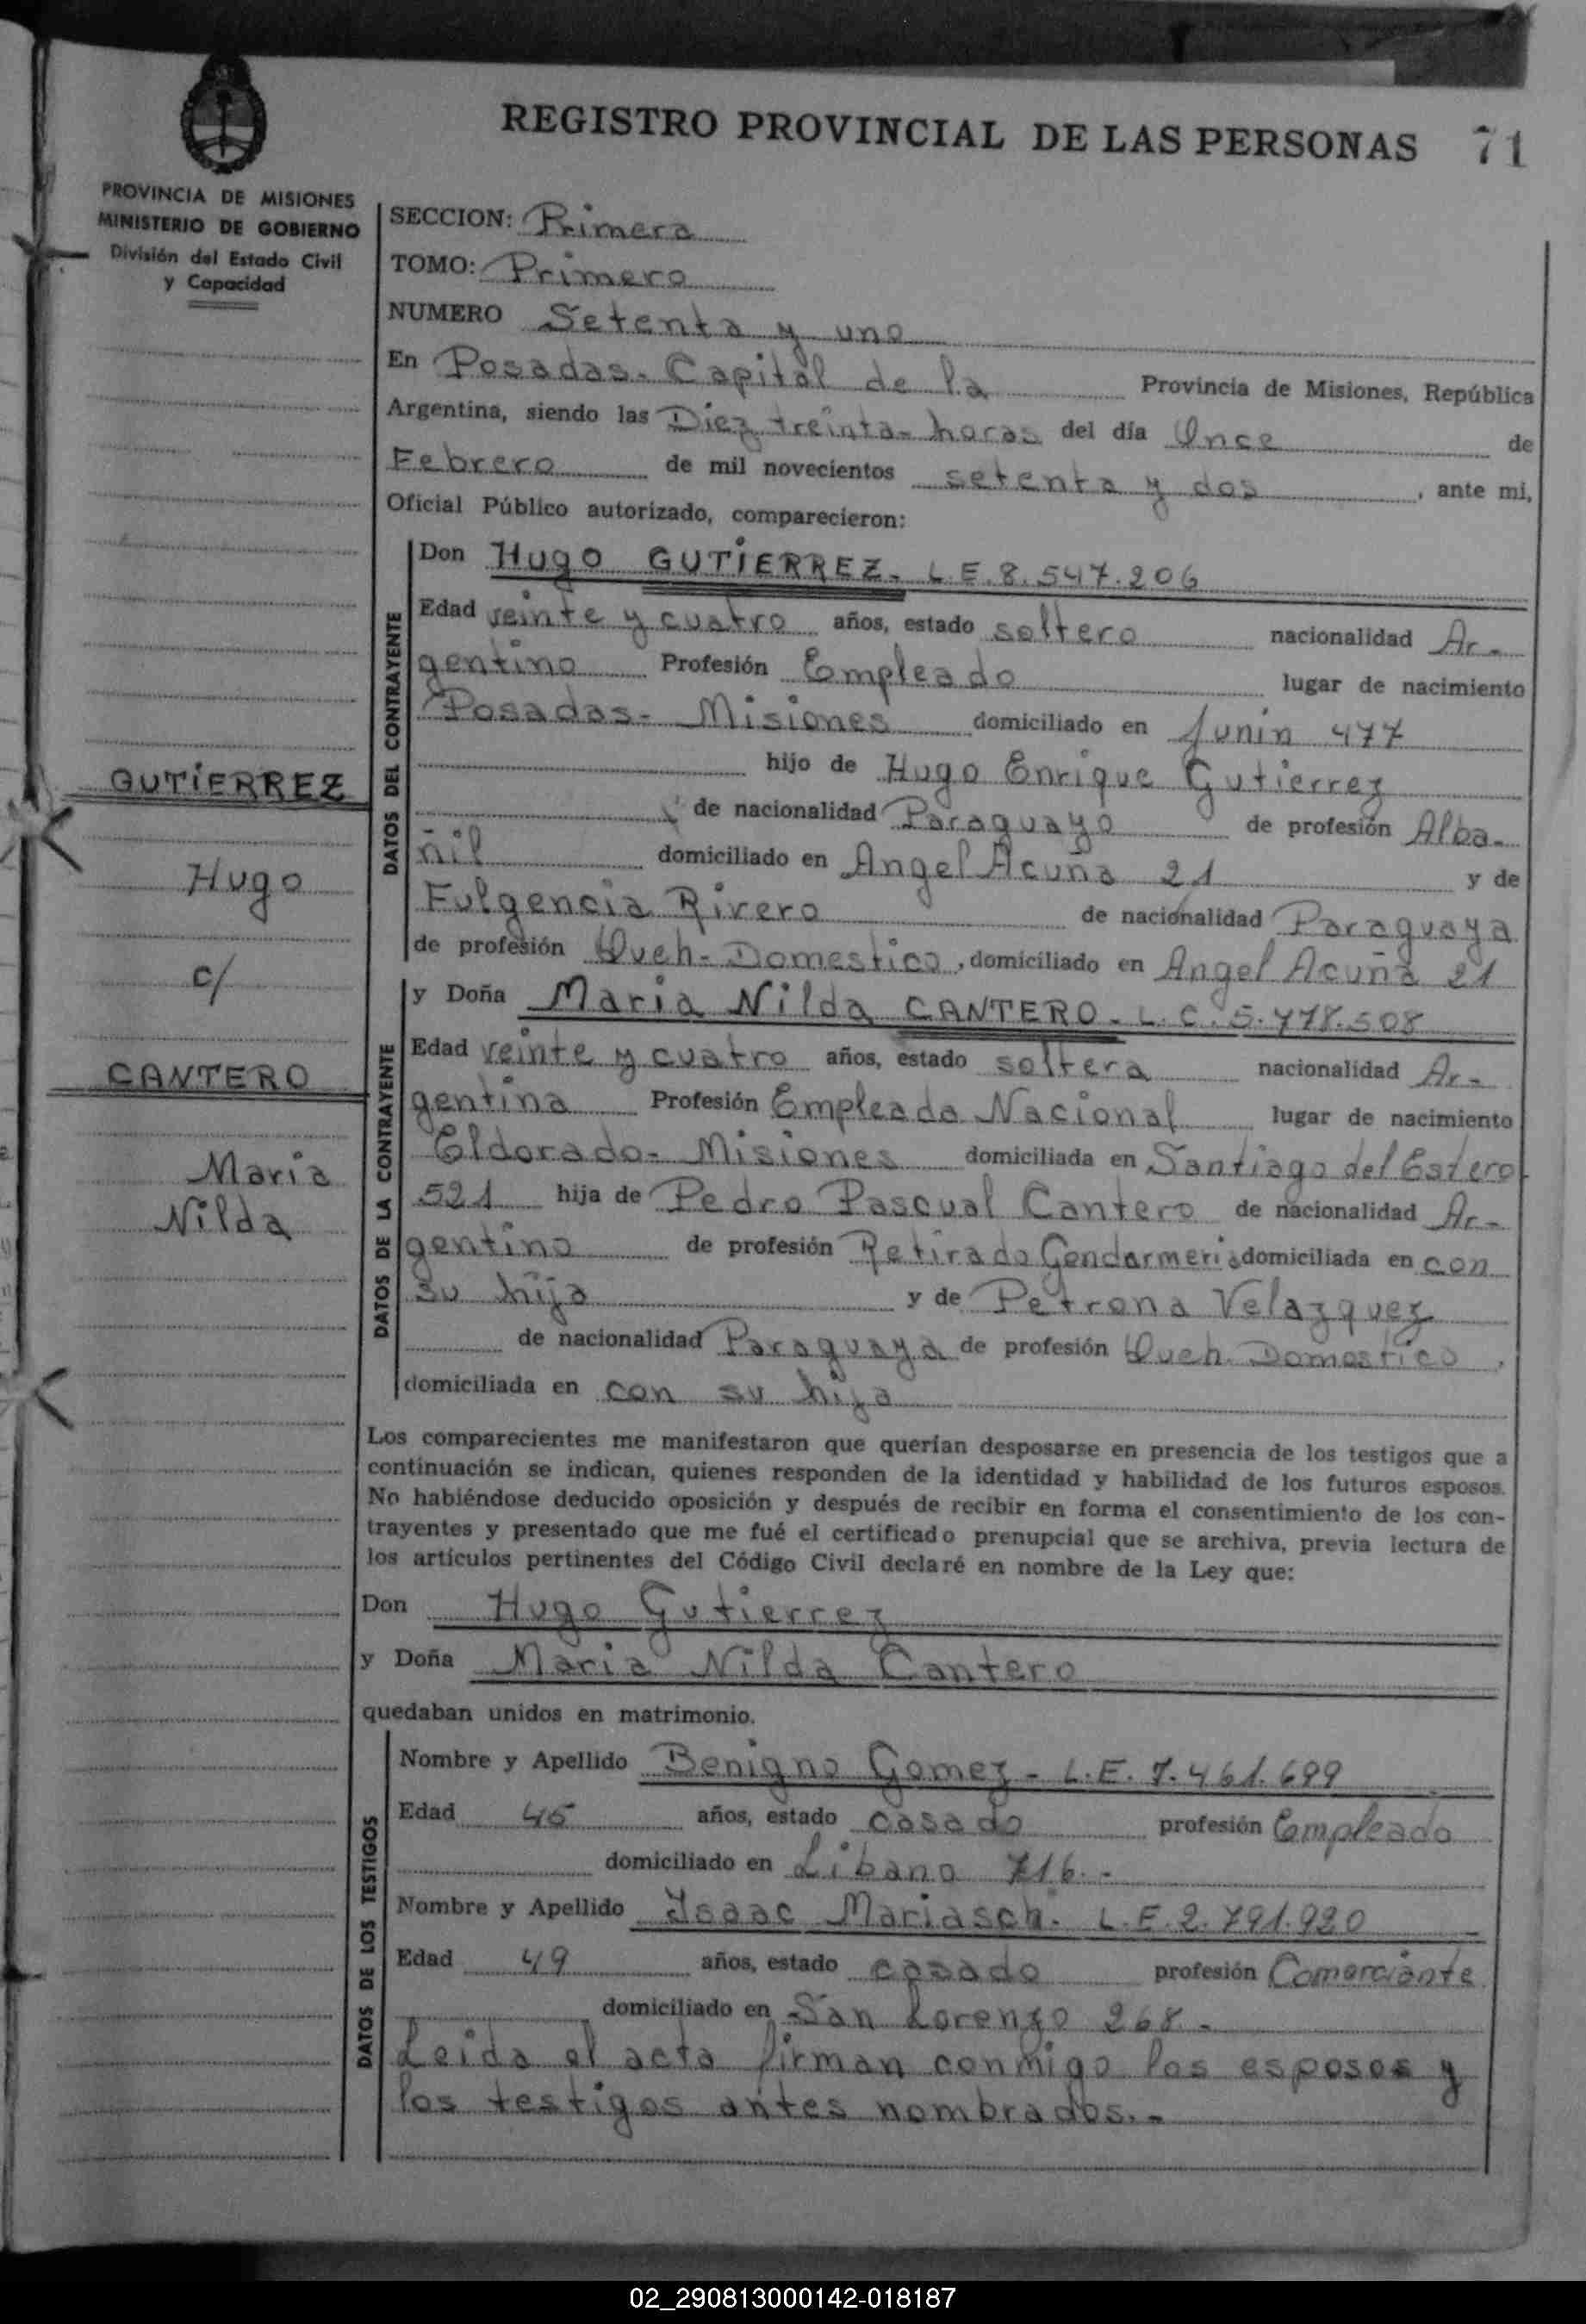 REGISTRO PROVINCIAL DE LAS PERSONAS 71
PROVINCIA DE MISIONES
MINISTERIO DE GOBIERNO
División del Estado Civil
y Capacidad
GUTIERREZ
Hugo
c/
CANTERO
Maria
Nilda
SECCION: Primera
TOMO: Primero
NUMERO Setenta y uno
En Posadas. Capital de la Provincia de Misiones, República
Argentina, siendo las Diez treinta- horas del día Once de
Febrero de mil novecientos setenta y dos, ante mi,
Oficial Público autorizado, comparecieron:
DATOS DEL CONTRAYENTE
Don Hugo GUTIERREZ. L.E. 8.547.206
Edad veinte y cuatro años, estado soltero nacionalidad Ar-
gentino Profesión Empleado lugar de nacimiento
Posadas- Misiones domiciliado en Junin 477
hijo de Hugo Enrique Gutierrez
de nacionalidad Paraguayo de profesión Alba-
ñil domiciliado en Angel Acuña 21 y de
Fulgencia Rivero de nacionalidad Paraguaya
de profesión Queh- Domestico, domiciliado en Angel Acuña 21
DATOS DE LA CONTRAYENTE
y Doña Maria Nilda CANTERO- L.C. 5.778.508
Edad veinte y cuatro años, estado soltera nacionalidad Ar-
gentina Profesión Empleada Nacional lugar de nacimiento
Eldorado- Misiones domiciliada en Santiago del Estero
521 hija de Pedro Pascual Cantero de nacionalidad Ar-
gentino de profesión Retirado Gendarmeria domiciliada en con
su hija y de Petrona Velazquez
de nacionalidad Paraguaya de profesión Queh. Domestico,
domiciliada en con su hija
Los comparecientes me manifestaron que querían desposarse en presencia de los testigos que a
continuación se indican, quienes responden de la identidad y habilidad de los futuros esposos.
No habiéndose deducido oposición y después de recibir en forma el consentimiento de los con-
trayentes y presentado que me fué el certificado prenupcial que se archiva, previa lectura de
los artículos pertinentes del Código Civil declaré en nombre de la Ley que:
Don Hugo Gutierrez
y Doña Maria Nilda Cantero
quedaban unidos en matrimonio.
DATOS DE LOS TESTIGOS
Nombre y Apellido Benigno Gomez- L.E. 7.461.699
Edad 45 años, estado casado profesión Empleado
domiciliado en Libano 716.-
Nombre y Apellido Isaac Mariasch. L.E. 2.791.920
Edad 49 años, estado casado profesión Comerciante
domiciliado en San Lorenzo 268.
Leida el acta firman conmigo los esposos y
los testigos antes nombrados.-
02_290813000142-018187